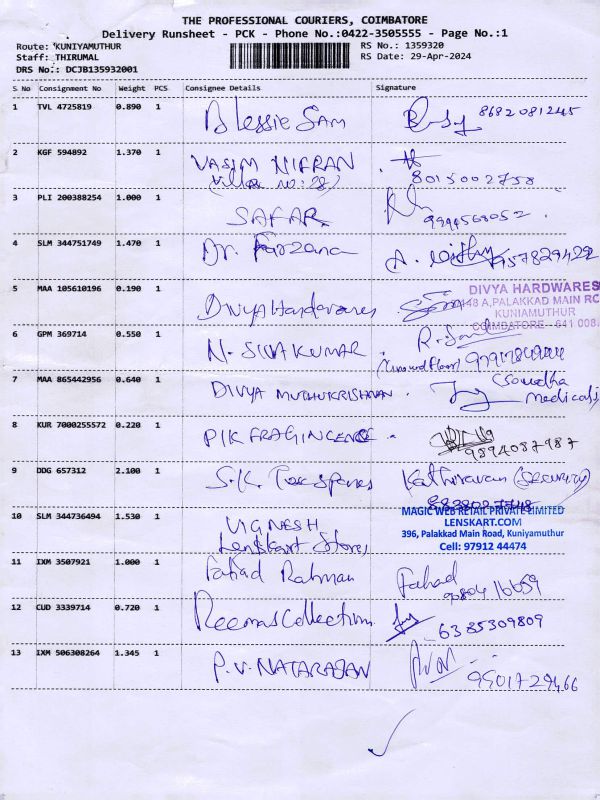 THE PROFESSIONAL COURIERS, COIMBATORE
Delivery Runsheet - PCK - Phone No.:0422-3505555 - Page No.:1
Route: KUNIYAMUTHUR RS No.: 1359320
Staff: THIRUMAL RS Date: 29-Apr-2024
DRS No.: DCJB135932001
S No Consignment No Weight PCS Consignee Details Signature
1 TVL 4725819 0.890 1 Blessie Sam 8682081245
2 KGF 594892 1.370 1 VASIM NIFRAN
8015002758
3 PLI 200388254 1.000 1 SAFAR
4 SLM 344751749 1.470 1 Dr. Farzana
5 MAA 105610196 0.190 1 Divya Hardwares
DIVYA HARDWARES
148 A, PALAKKAD MAIN RO
KUNIAMUTHUR
COIMBATORE - 641 008.
6 GPM 369714 0.550 1 N. SIVAKUMAR
(Ground floor)
7 MAA 865442956 0.640 1 DIVYA MUTHUKRISHNAN (Soundha
medicals)
8 KUR 7000255572 0.220 1 PIK FRAGINCENCE
9894087987
9 DDG 657312 2.100 1 S.K. Kathiravan (Security)
10 SLM 344736494 1.530 1 VIGNESH
Lenskart Stores
MAGIC WEB RETAIL PRIVATE LIMITED
LENSKART.COM
396, Palakkad Main Road, Kuniyamuthur
Cell: 97912 44474
11 IXM 3507921 1.000 1 Fahad Rahman Fahad
12 CUD 3339714 0.720 1 Reemas Collection
6385309809
13 IXM 506308264 1.345 1 P.V. NATARAJAN
9901729466